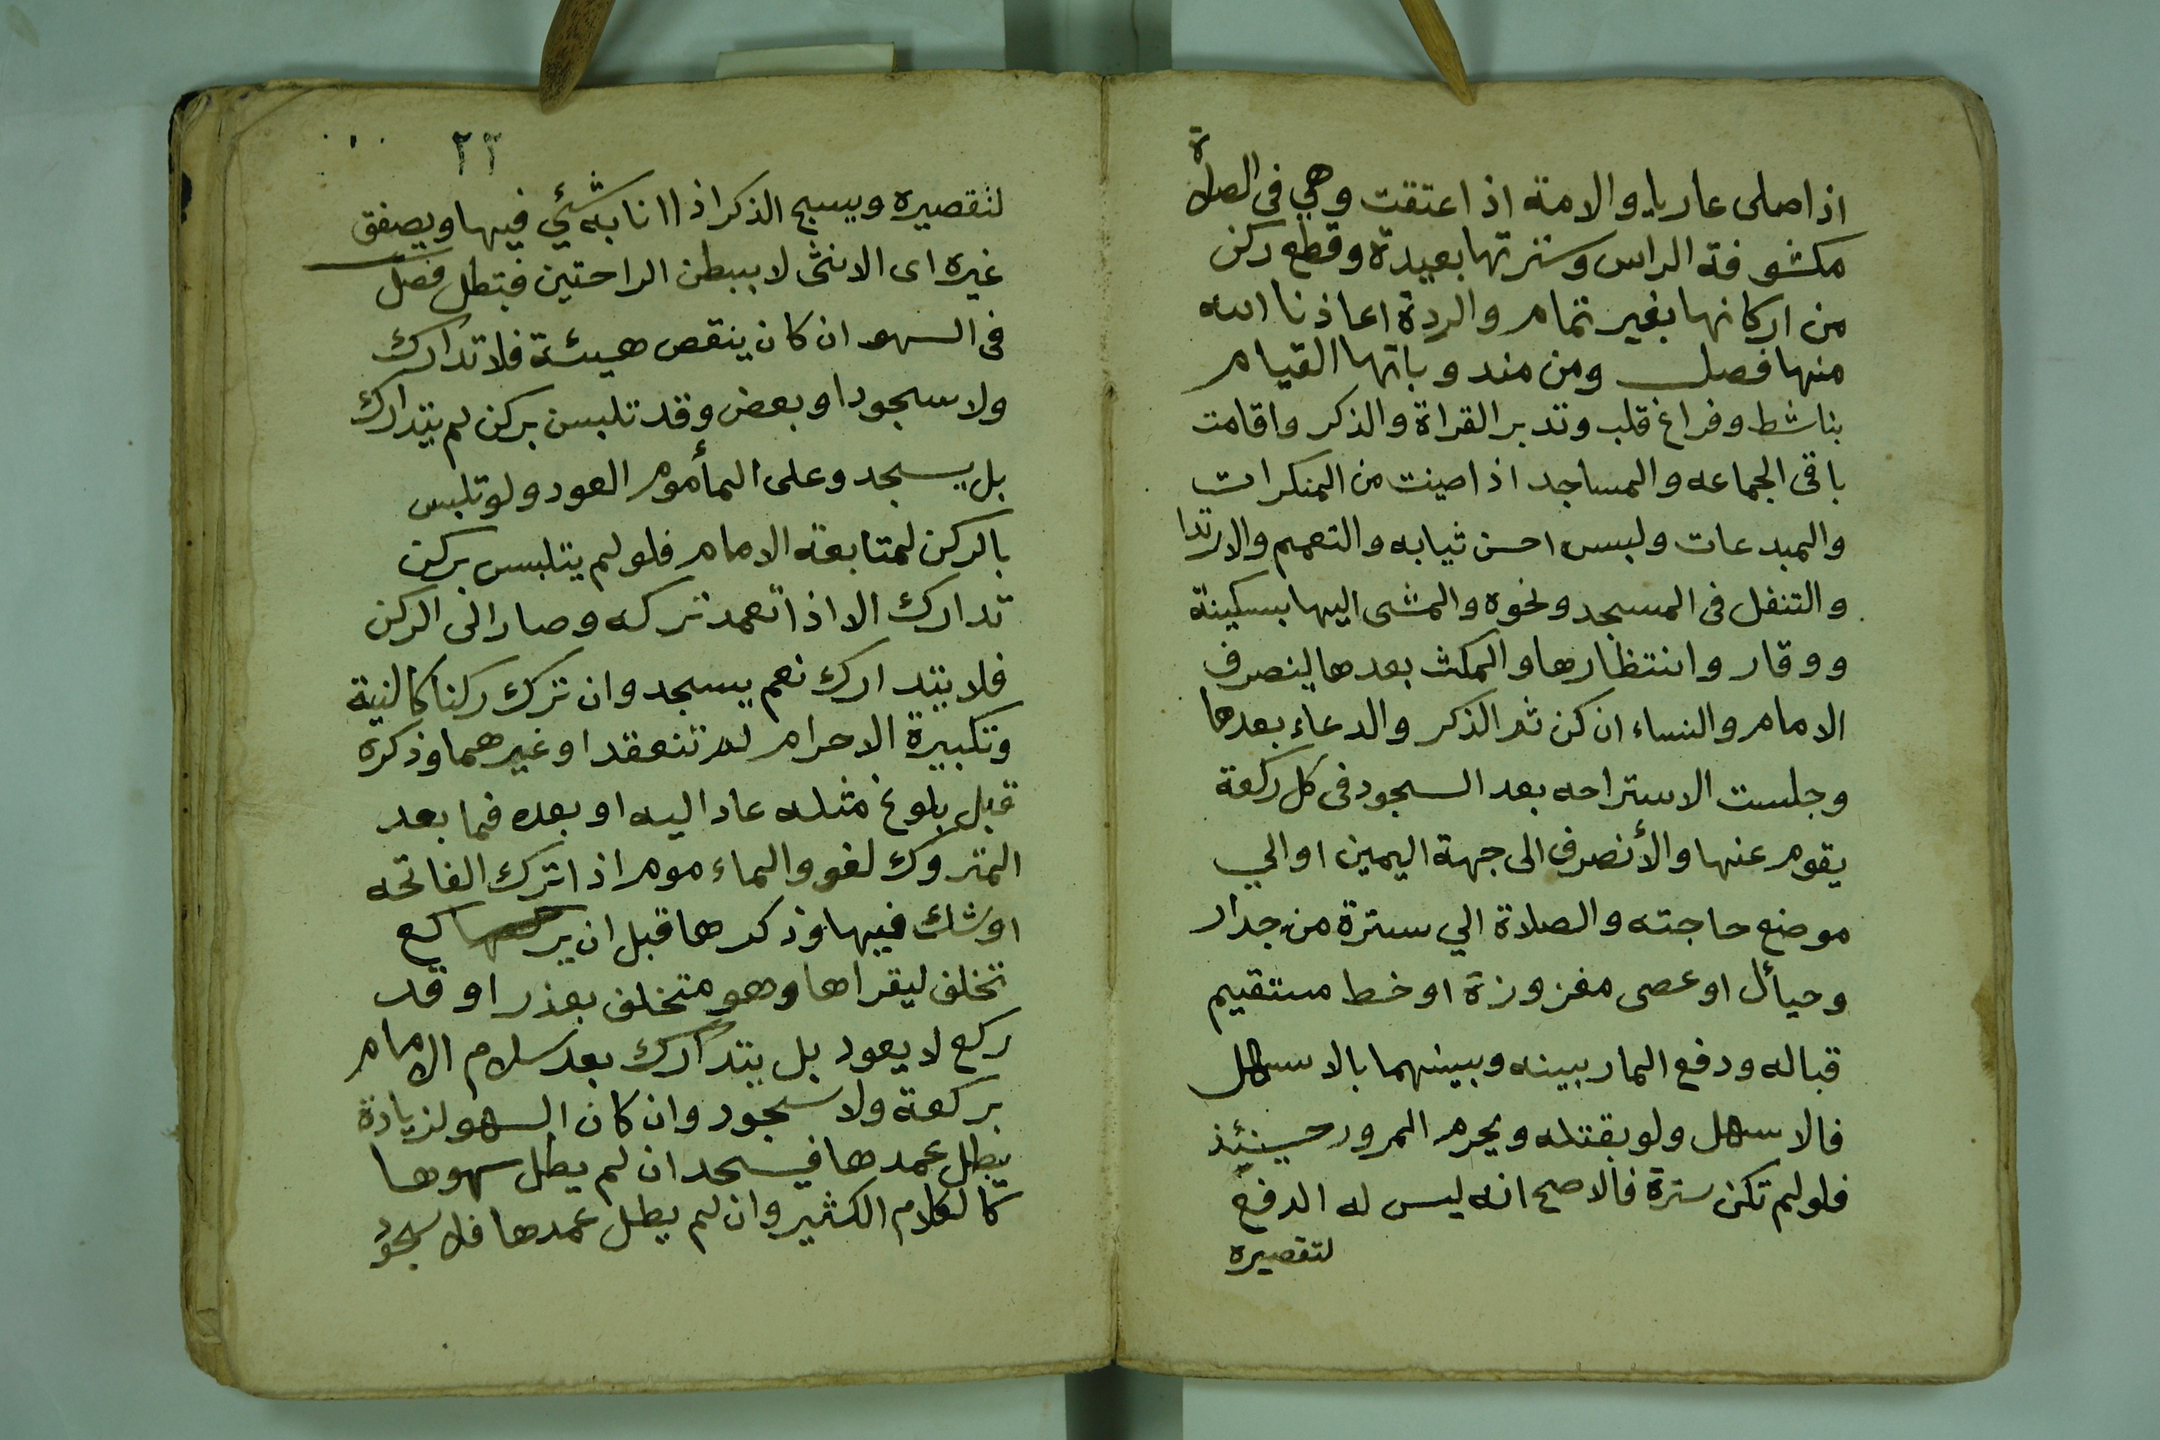 اذا صلى عاريا والامة اذ اعتقت وهي في الصلاة
مكشوفة الراس وسترتها بعيدة وقطع ركن
من اركانها بغير تمام والردة اعاذنا الله
منها فصل ومن مندوباتها القيام
بناشط وفراغ قلب وتدبر القراة والذكر واقامت
باقى الجماعه والمساجد اذا صينت من المنكرات
والمبدعات ولبس احسن ثيابه والتعمم والارتدا
والتنفل فى المسجد ونحوه والمشى اليها بسكينة
ووقار وانتظارها والمكث بعدها لينصرف
الامام والنساء ان كن ثم الذكر والدعاء بعدها
وجلست الاستراحه بعد السجود فى كل ركعة
يقوم عنها والأنصرف الى جهة اليمين او الي
موضع حاجته والصلاة الي سترة من جدار
وحيأل او عصى مغروزة او خط مستقيم
قباله ودفع المار بينه وبينهما بالاسهل
فالاسهل ولو بقتله ويحرم المرور حينئذ
فلو لم تكن سترة فالاصح انه ليس له الدفع
لتقصيره
٢٢
لتقصيره ويسبح الذكر اذا انابه شئي فيها ويصفق
غيره اى الانثى لا ببطن الراحتين فتبطل فصل
فى السهو ان كان ينقص هيئة فلا تدارك
ولا سجود او بعض وقد تلبس بركن لم يتدارك
بل يسجد وعلى المأموم العود ولو تلبس
بالركن لمتابعة الامام فلو لم يتلبس بركن
تدارك الا اذا تعمد تركه وصار الى الركن
فلا يتدارك نعم يسجد وان ترك ركنا كالنية
وتكبيرة الاحرام لم تنعقد او غيرهما وذكره
قبل بلوغ مثله عاد اليه او بعده فما بعد
المتروك لغو والماءموم اذا ترك الفاتحه
او شك فيها وذكرها قبل ان يركع
تخلف ليقراها وهو متخلف بعذر او قد
ركع لا يعود بل يتدارك بعد سلام الامام
بركعة ولا سجود وان كان السهو لزيادة
يبطل عمدها فيسجد ان لم يطل سهوها
كالكلام الكثير وان لم يطل عمدها فلا سجود